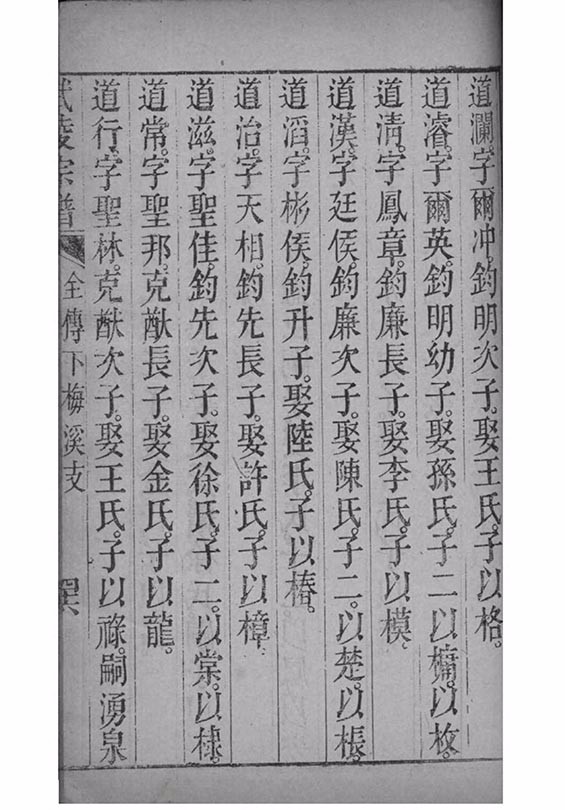 道瀾。字爾冲。鈞明次子。娶王氏。子以格。
道濬。字爾英。鈞明幼子。娶孫氏。子二。以楠。以枚。
道淸。字鳳章。鈞廉長子。娶李氏。子以模。
道漢。字廷侯。鈞廉次子。娶陳氏。子二。以楚。以棖。
道滔。字彬侯。鈞升子。娶陸氏。子以椿。
道治。字天相。鈞先長子。娶許氏。子以樟。
道滋。字聖佳。鈞先次子。娶徐氏。子二。以棠。以棣。
道常。字聖邦。克猷長子。娶金氏。子以龍。
道行。字聖林。克猷次子。娶王氏。子以祿。嗣湧泉
武陵宗譜 仝傳下梅溪支